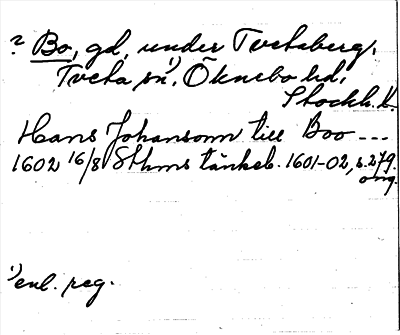 ? Bo, gd, under Tvetaberg,
Tveta sn¹⁾, Öknebo hd,
Stockh. l.
Hans Johansonn till Boo ---
1602 16/8 Sthms tänkeb. 1601-02, s. 279.
orig.
¹⁾ enl. reg.